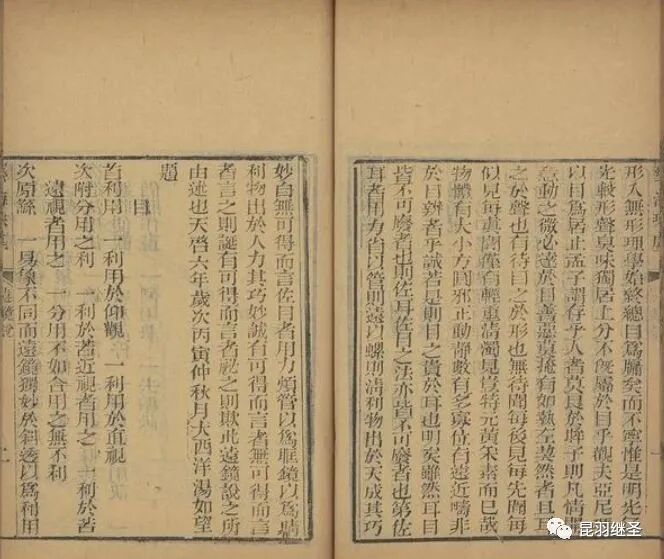 形入無形理學始終總目爲屬矣而不寧惟是明先
先較形聲臭味獨居上分不旣屬於目乎觀夫亞尼
以目爲居止孟子謂存乎人者莫良於眸子則凡情
意動之微必達於目善惡莫掩有如執左然者且耳
之於聲也有待目之於形也無待聞每後見每先聞每
似見每眞聞僅有輕重清濁見豈特元黃朱素而已哉
物體有大小方圓邪正動靜數有多寡位有遠近疇非
於目辨者乎誠若是則目之貴於耳也明矣雖然耳目
皆不可廢者也則佐耳佐目之法亦皆不可廢者也第佐
耳者用力省以管則遠以螺則清利物出於天成其巧
妙自無可得而言佐目者用力煩管以爲眶鏡以爲睛
利物出於人力其巧妙誠有可得而言者無可得而言
者言之則誕有可得而言者祕之則欺此遠鏡說之所
由述也天啓六年歲次丙寅仲秋月大西洋湯如望
題
目
首利用 一利用於仰觀 一利用於直視
次附分用之利 一利於苦近視者用之 一利於苦
遠視者用之 一分用不如合用之無不利
次原繇 一易象不同而遠鏡獨妙於斜透以爲利用
昆羽继圣